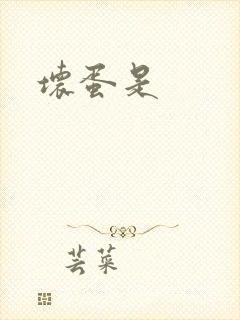 壞蛋是
芸菜